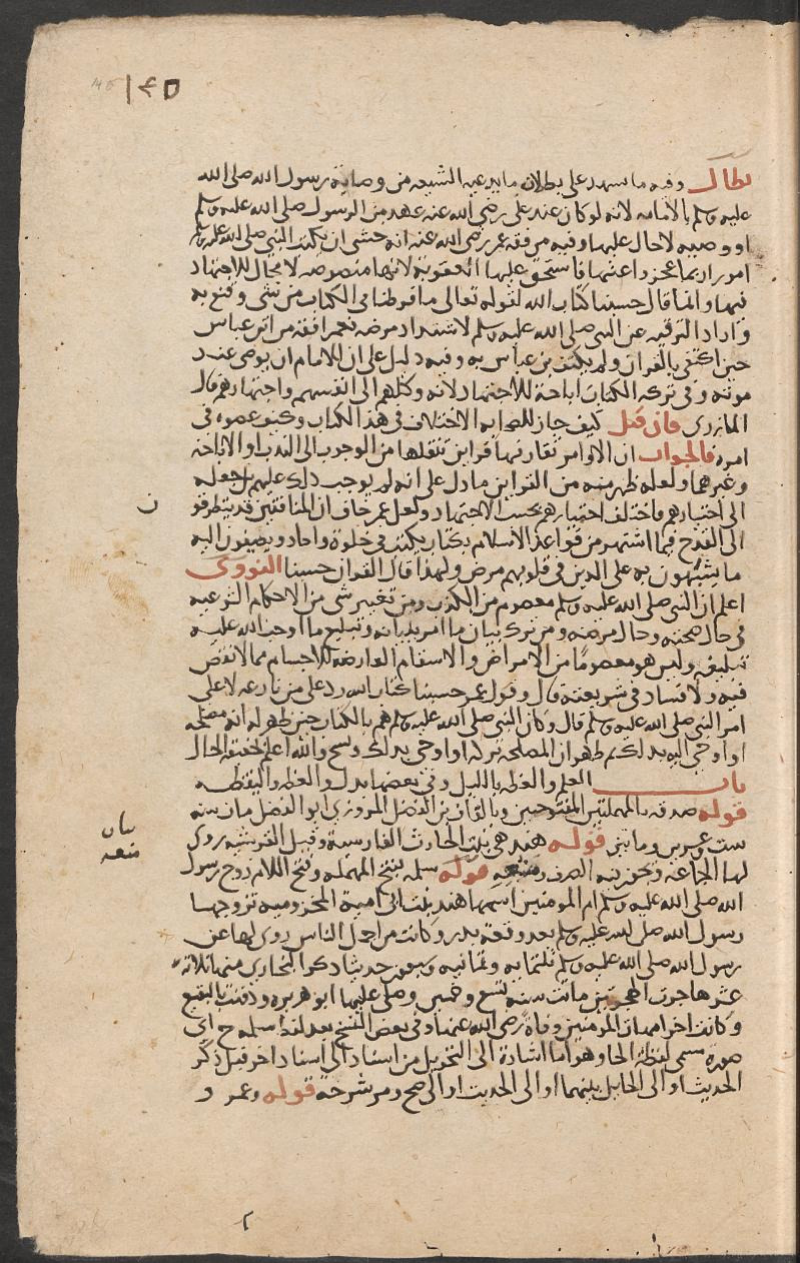 ١٤٥
بطال وفيه ما يشهد على بطلان ما يدعيه الشيعه من وصاية رسول الله صلى الله
عليه وسلم بالامامه لانه لو كان عند على رضى الله عنه عهد من الرسول صلى الله عليه وسلم
او وصيه لاحال عليها وفيه من فقه عمر رضى الله عنه انه خشى ان يكتب النبي صلى الله عليه وسلم
امورا ربما عجزوا عنها فاستحقوا عليها العقوبة لانها منصوصه لا مجال للاجتهاد
فيها وانما قال حسبنا كتاب الله لقوله تعالى ما فرطنا فى الكتاب من شى وقنع به
واراد الترفيه عن النبي صلى الله عليه وسلم لاشتداد مرضه فعمر افقه من ابن عباس
حين اكتفى بالقران ولم يكتف بن عباس به وفيه دليل على ان للامام ان يوصى عند
موته وفى تركه الكتاب اباحة للاجتهاد لانه وكلهم الى انفسهم واجتهادهم قال
المازرى فان قيل كيف جاز للصحابه الاختلاف فى هذا الكتاب وكيف عصوه فى
امره فالجواب ان الاوامر تقارنها قراين تنقلها من الوجوب الى الندب او الاباحة
وغيرهما ولعله ظهر منه من القراين ما دل على انه لم يوجب ذلك عليهم بل جعله
الى اختيارهم فاختلف اختيارهم بحسب الاجتهاد ولعل عمر خاف ان المنافقين قد يتطرقو
ن
الى القدح فيما اشتهر من قواعد الاسلام بكتاب يكتب فى خلوة واحاد ويضيفون اليه
ما يشبهون به على الذين فى قلوبهم مرض ولهذا قال القران حسبنا النووى
اعلم ان النبي صلى الله عليه وسلم معصوم من الكذب ومن تغيير شى من الاحكام الشرعيه
فى حال صحته وحال مرضه ومن ترك بيان ما امر ببيانه وتبليغ ما اوجب الله عليه
تبليغه وليس هو معصوما من الامراض والاسقام العارضة للاجسام مما لا نقص
فيه ولا فساد فى شريعته قال وقول عمر حسبنا كتاب الله رد على من نازعه لا على
امر النبي صلى الله عليه وسلم قال وكان النبي صلى الله عليه وسلم هم بالكتاب حين ظهر له انه مصلحه
او اوحى اليه بذلك ثم ظهر ان المصلحه تركه او اوحى بذلك ونسخ والله اعلم بحقيقة الحال
باب العلم والعظه بالليل وفى بعضها بدل والعظه واليقظه
قوله صدقه بالمهملتين المفتوحتين وبالقاف بن الفضل المروزى ابو الفضل مات سنه
ست وعشرين وماىتى قوله هند هى بنت الحارث الفارسية وقيل القرشيه روى
بيان
منعه
لها الجماعه ويجوز فيه الصرف ومنعه قوله سلمه بفتح المهمله وفتح اللام زوج رسول
الله صلى الله عليه وسلم ام المومنين اسمها هند بنت ابى امية المخزوميه تزوجها
رسول الله صلى الله عليه وسلم بعد وقعة بدر وكانت من اجمل الناس روى لها عن
رسول الله صلى الله عليه وسلم ثلثمايه وثمانيه وسبعون حديثا ذكر البخارى منها ثلاثه
عشر هاجرت الهجرتين ماتت سنه تسع وخمسين وصلى عليها ابو هريره ودفنت بالبقيع
وكانت اخر امهات المومنين وفاة رضى الله عنها وفى بعض النسخ بعد لفظ اسلمه ح اى
صوره مسمى لفظة الحا وهو اما اشارة الى التحويل من اسناد الى اسناد اخر قبل ذكر
الحديث او الى الحايل بينهما او الى الحديث او الى صح ومر شرحه قوله وعمرو